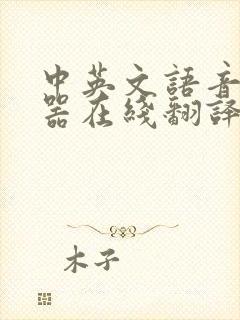 中英文語音
器在綫翻譯
木子